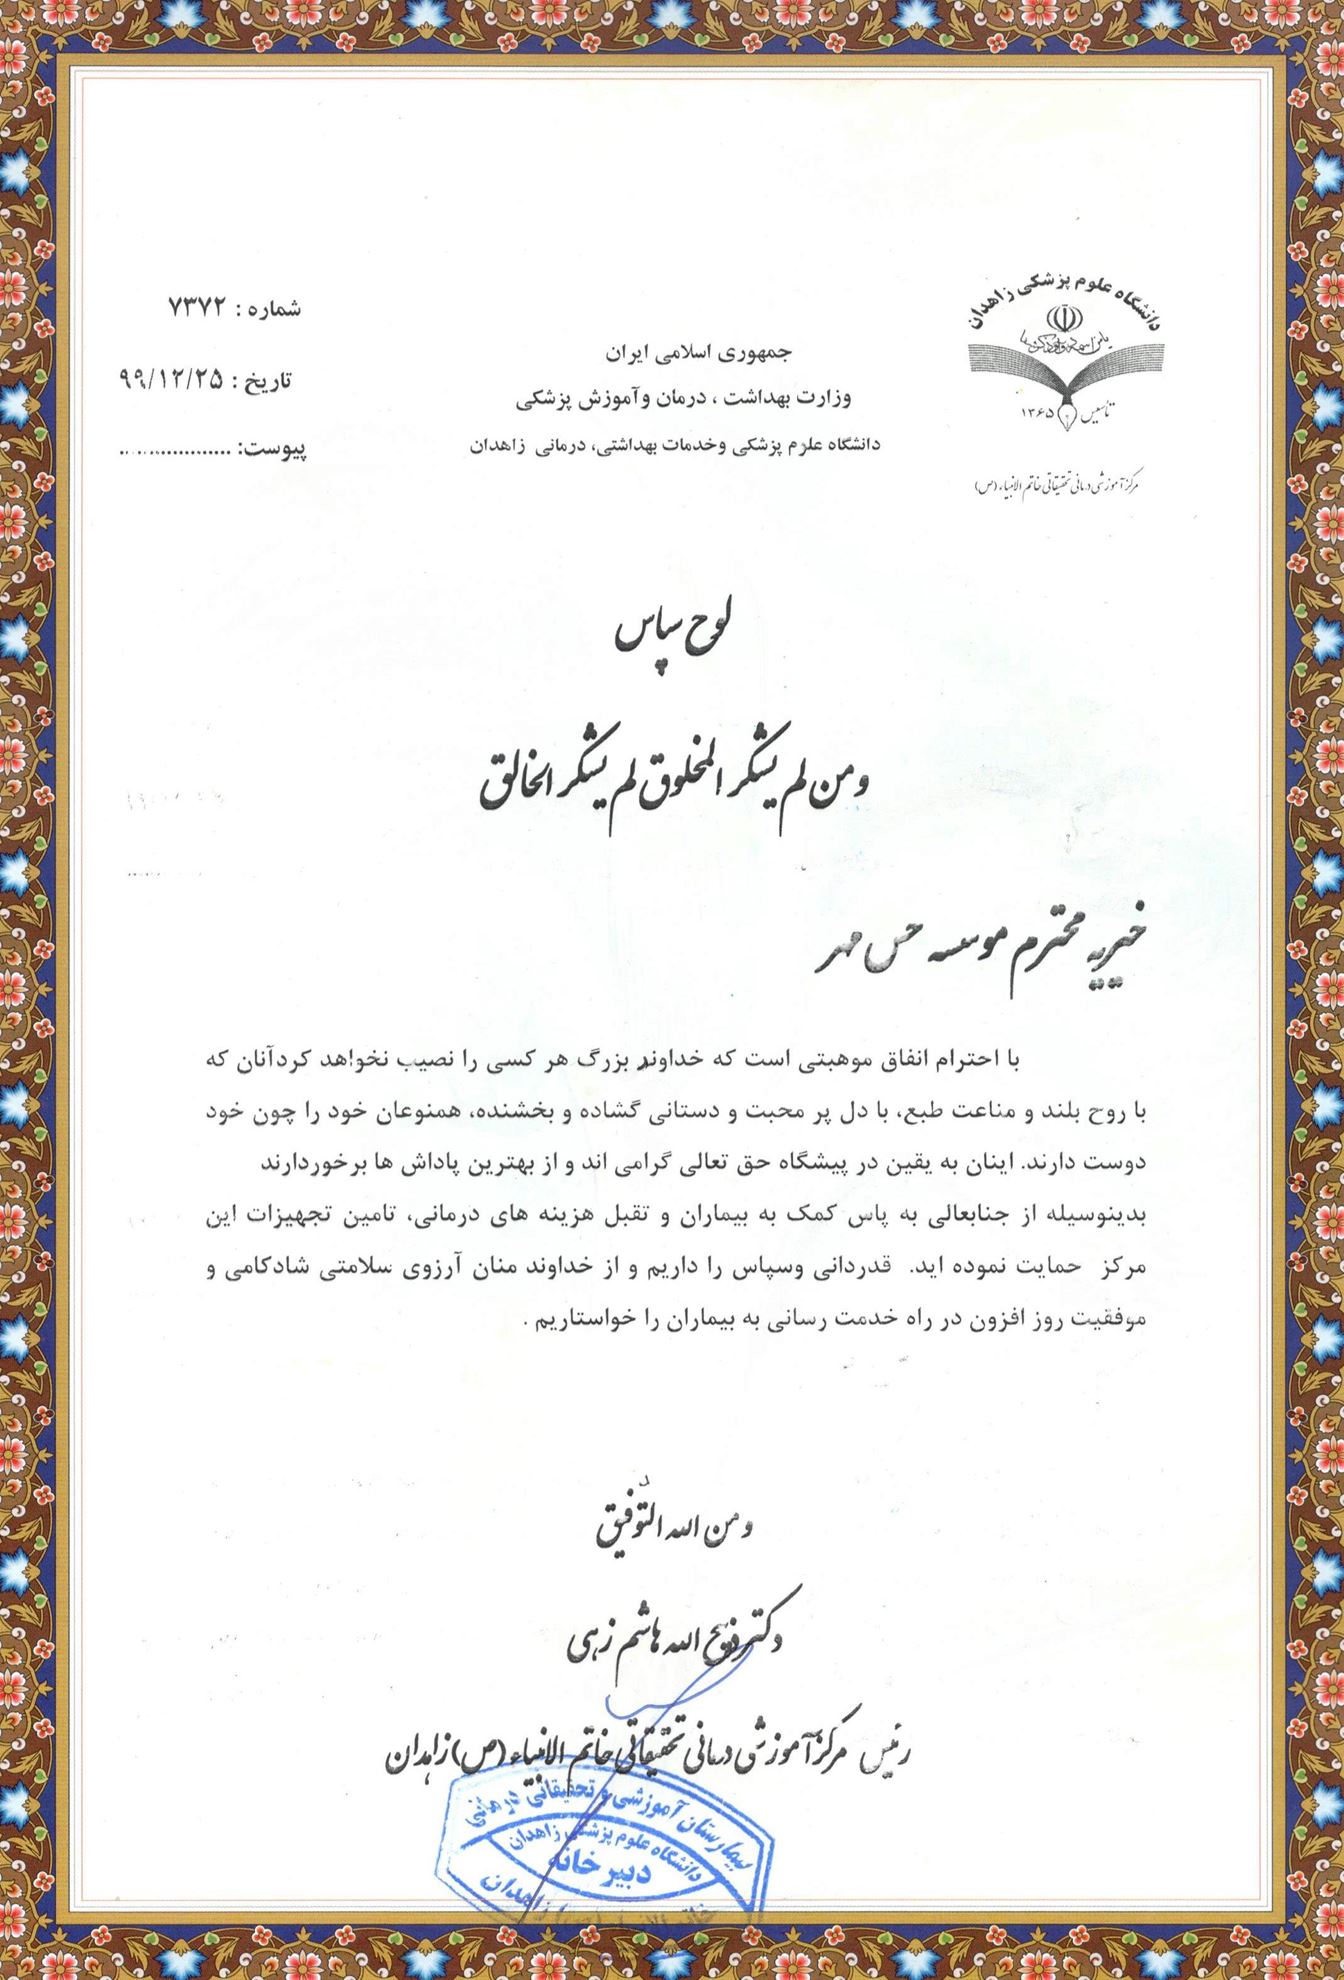 دانشگاه علوم پزشکی زاهدان
تأسیس ۱۳۶۵
مرکز آموزشی درمانی تحقیقاتی خاتم الانبیاء (ص)
جمهوری اسلامی ایران
وزارت بهداشت ، درمان وآموزش پزشکی
دانشگاه علوم پزشکی وخدمات بهداشتی، درمانی زاهدان
شماره : ۷۳۷۲
تاریخ : ۹۹/۱۲/۲۵
پیوست: ..................
لوح سپاس
ومن لم یشکر المخلوق لم یشکر الخالق
خیریه محترم موسسه حس مهر
با احترام انفاق موهبتی است که خداوند بزرگ هر کسی را نصیب نخواهد کردآنان که
با روح بلند و مناعت طبع، با دل پر محبت و دستانی گشاده و بخشنده، همنوعان خود را چون خود
دوست دارند. اینان به یقین در پیشگاه حق تعالی گرامی اند و از بهترین پاداش ها برخوردارند
بدینوسیله از جنابعالی به پاس کمک به بیماران و تقبل هزینه های درمانی، تامین تجهیزات این
مرکز حمایت نموده اید. قدردانی وسپاس را داریم و از خداوند منان آرزوی سلامتی شادکامی و
موفقیت روز افزون در راه خدمت رسانی به بیماران را خواستاریم .
ومن الله التّوفیق
دکتر ذبیح الله هاشم زهی
رئیس مرکز آموزشی درمانی تحقیقاتی خاتم الانبیاء (ص) زاهدان
بیمارستان آموزشی و تحقیقاتی درمانی
دانشگاه علوم پزشکی زاهدان
دبیرخانه
زاهدان